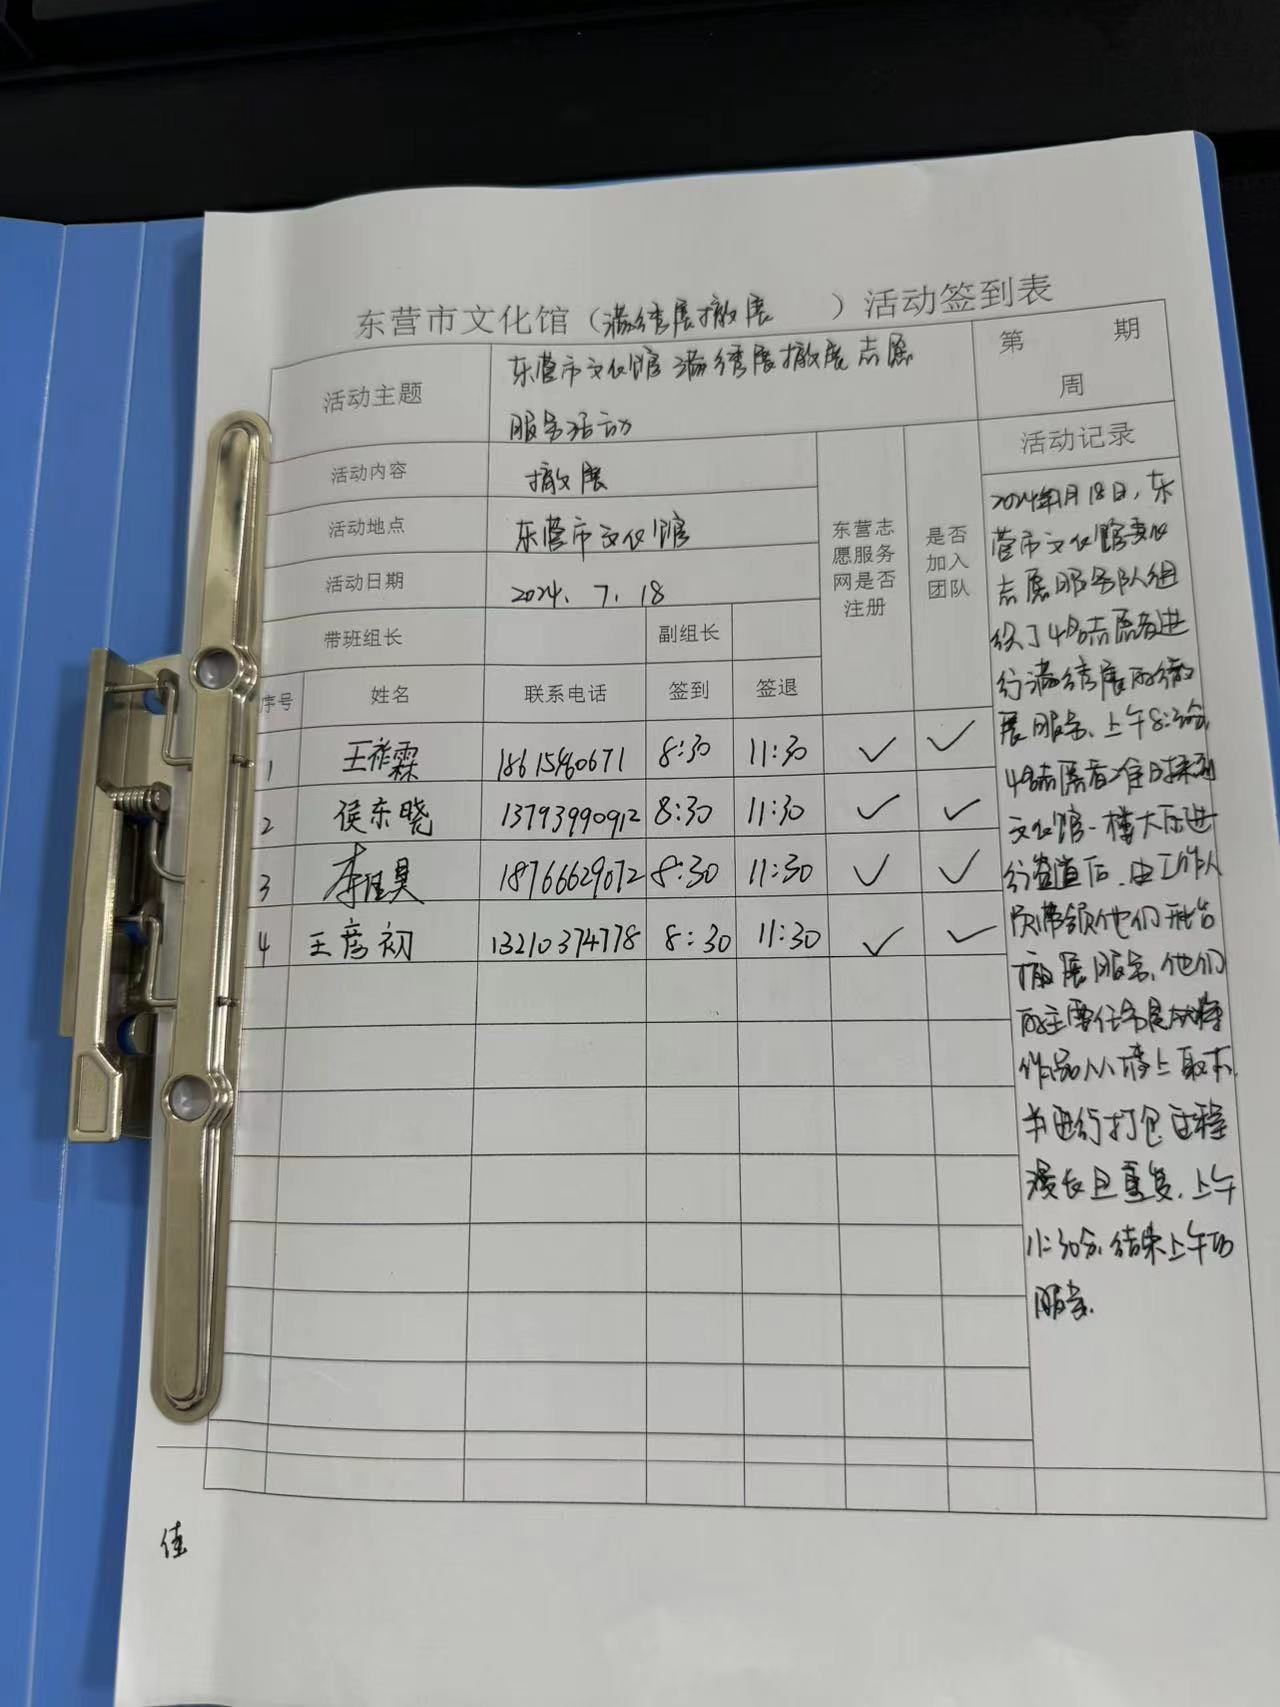 东营市文化馆（满绣展撤展　　）活动签到表
活动主题 东营市文化馆满绣展撤展志愿
服务活动
第 期
周
活动内容 撤展
活动地点 东营市文化馆
活动日期 2024.7.18
带班组长 副组长
东营志
愿服务
网是否
注册
是否
加入
团队
活动记录
序号 姓名 联系电话 签到 签退
1 王祚霖 18615960671 8:30 11:30 ✓ ✓
2 侯东晓 13793990912 8:30 11:30 ✓ ✓
3 李佳昊 18766629072 8:30 11:30 ✓ ✓
4 王彦初 13210374778 8:30 11:30 ✓ ✓
2024年月18日，东
营市文化馆文化
志愿服务队组
织了4名志愿者进
行满绣展的撤
展服务，上午8:30分，
4名志愿者准时来到
文化馆一楼大厅进
行签道后，由工作人
员带领他们开始
撤展服务，他们
的主要任务是将
作品从墙上取下，
并进行打包，过程
漫长且重复，上午
11:30分，结束上午的
服务。
佳